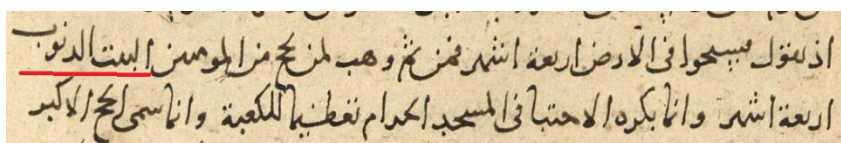 اذ يقول فسيحوا في الارض اربعة اشهر فمن ثم وهب لمن يحج من المومنين البيت الذنوب
اربعة اشهر وانما يكره الاحتبا في المسجد الحرام تعظيما للكعبة وانما سمى الحج الاكبر